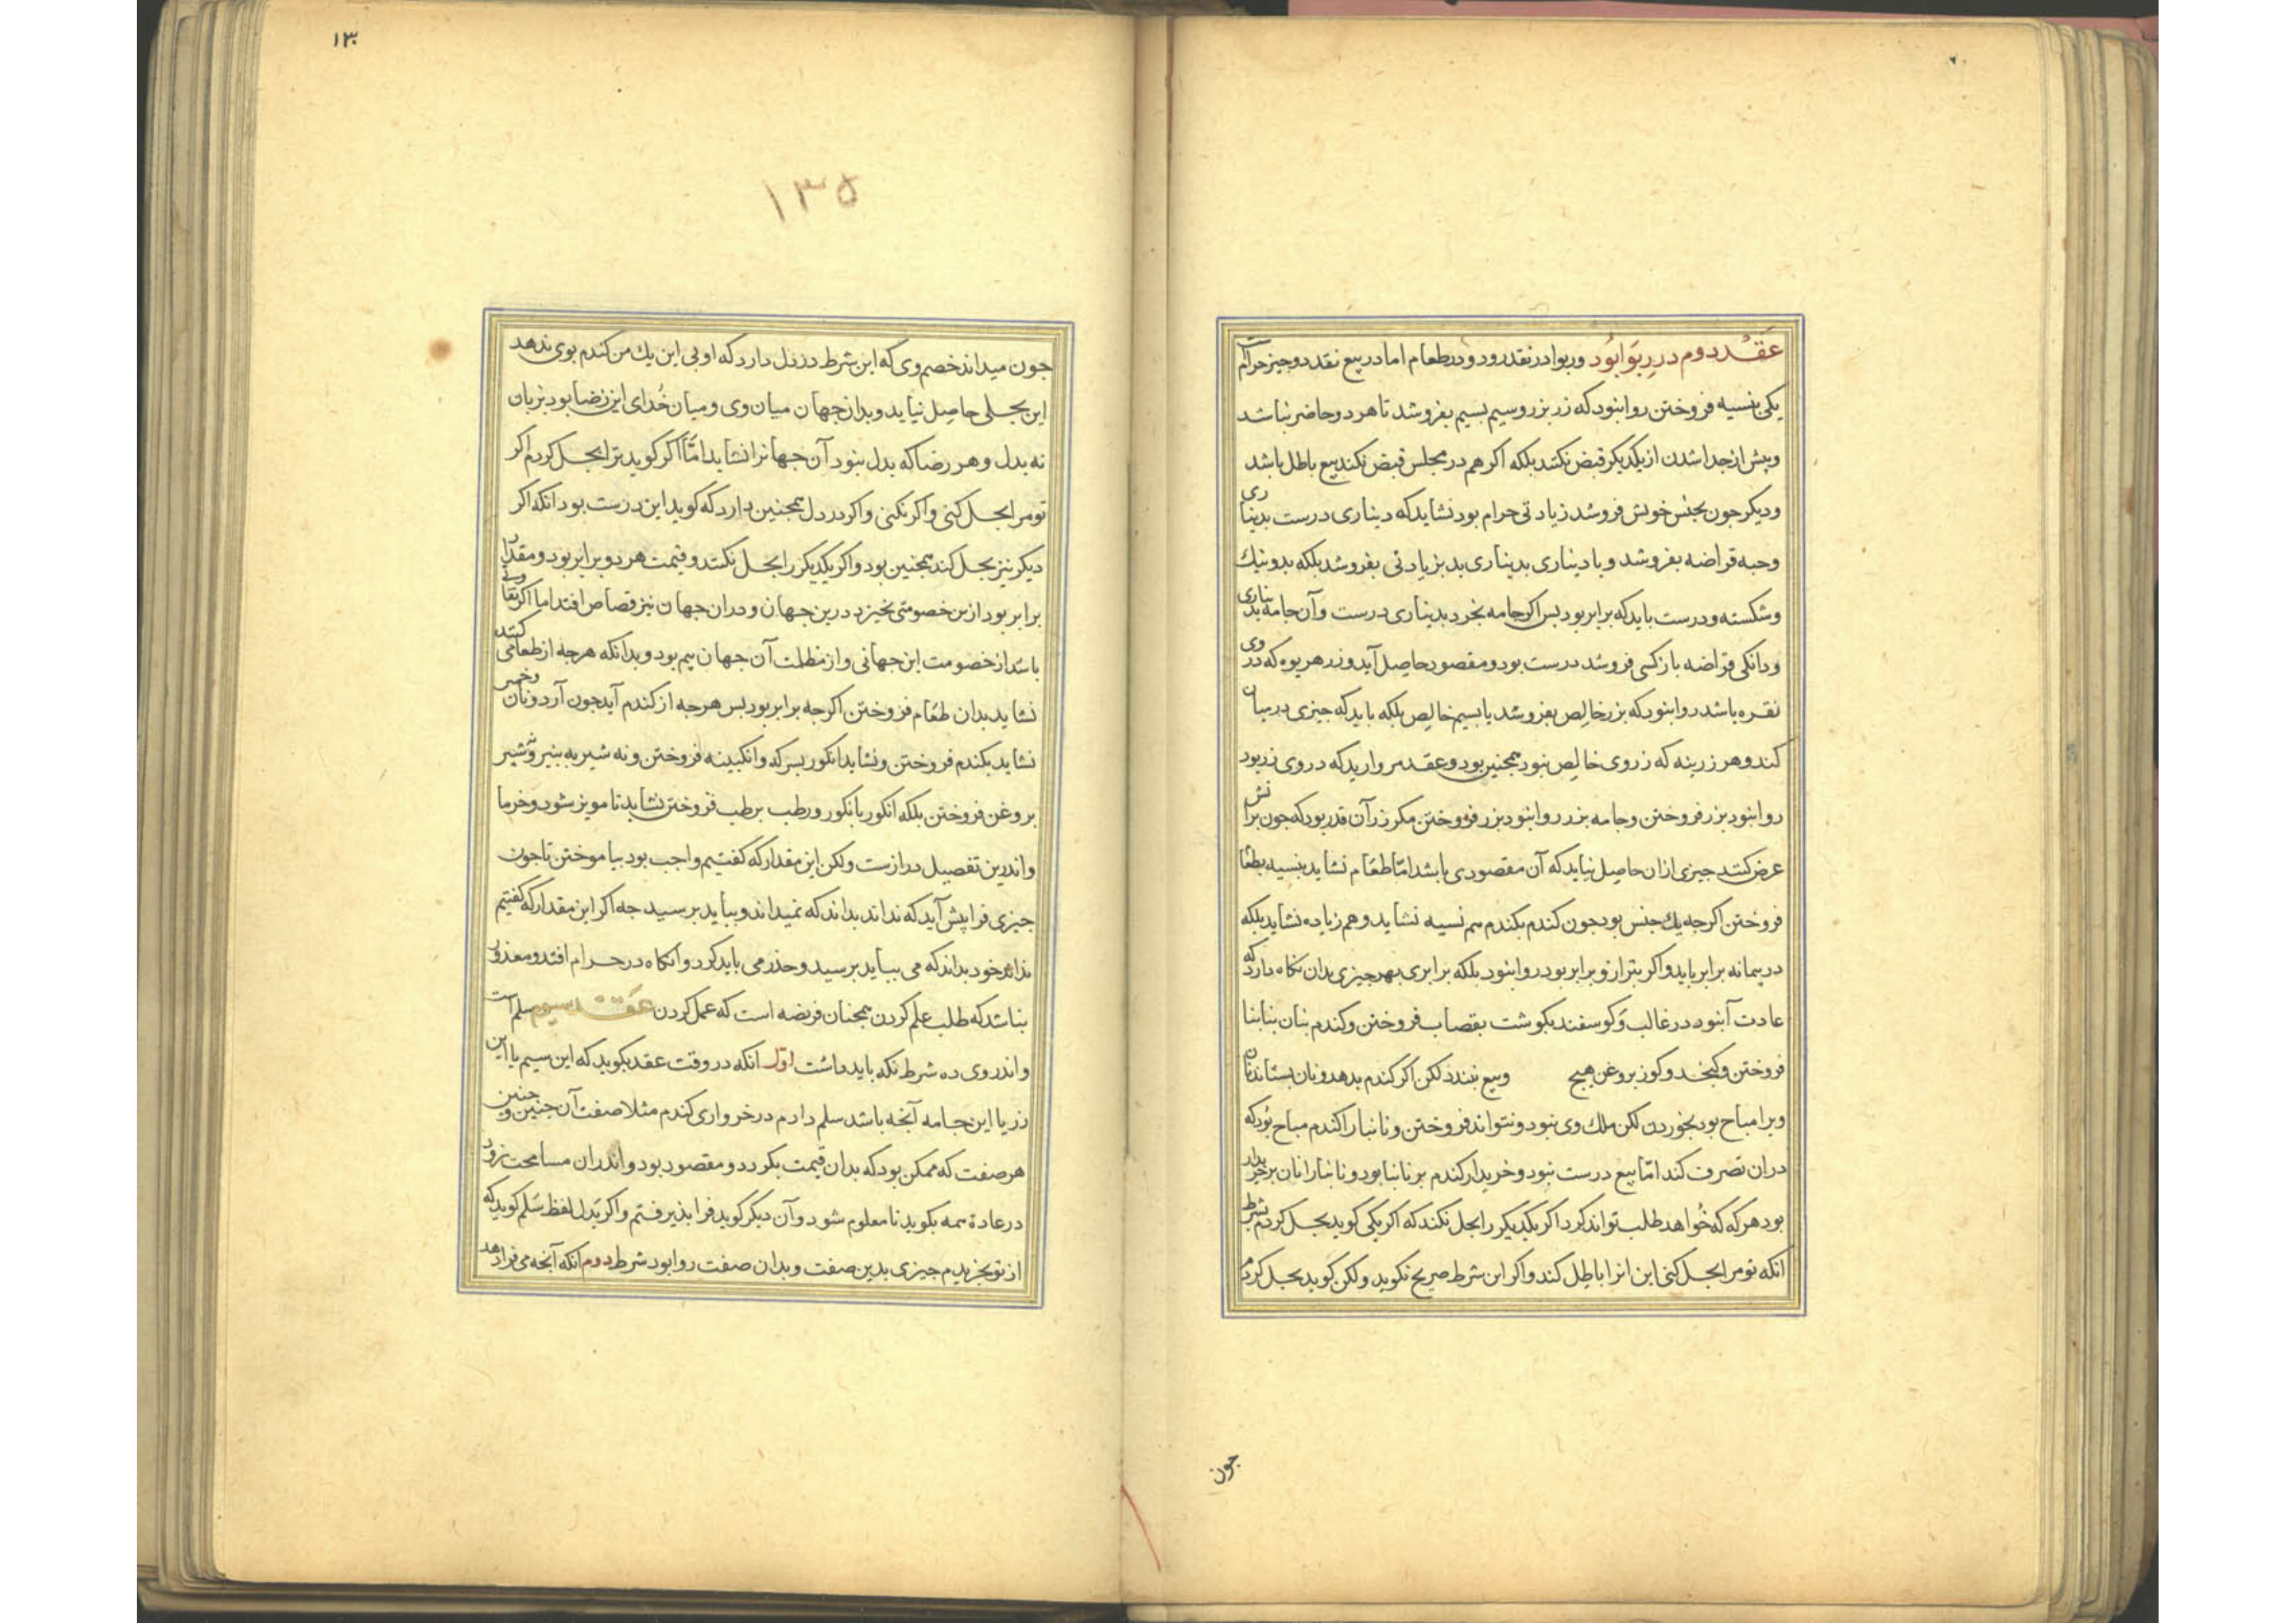 عقد دوم در ربوا بود وربوا در نقد رود و در طعام اما در بیع نقد دو جیز حرام است
یکی بنسیه فروختن روا نبود که زر بزر وسیم بسیم بفروشد تا هر دو حاضر نباشد
وپیش از جدا شدن از یکدیکر قبض نکنند بلکه اکر هم در مجلس قبض نکند بیع باطل باشد
ودیکر جون بجنس خویش فروشد زیادتی حرام بود نشاید که دیناری درست بدیناری
وحبه قراضه بفروشد ویا دیناری بدیناری بد بزیادتی بفروشد بلکه بد ونیک
وشکسته ودرست باید که برابر بود بس اکر جامه بخرد بدیناری درست وآن جامه بدیناری
ودانکی قراضه باز کسی فروشد درست بود ومقصود حاصل آید وزر هریوه که در وی
نقره باشد روا نبود که بزر خالص بفروشد یا بسیم خالص بلکه باید که جیزی در میان
کند وهر زرینه که زر وی خالص نبود همجنین بود وعقد مروارید که در وی زر بود
روا نبود بزر فروختن وجامه بزر روا نبود بزر فروختن مکر زر آن قدر بود که جون بر آتش
عرض کنند جیزی ازان حاصل نیاید که آن مقصودی باشد امّا طعام نشاید بنسیه بطعام
فروختن اکرجه یك جنس بود جون کندم بکندم هم نسیه نشاید وهم زیاده نشاید بلکه
در پیمانه برابر باید واکر بترازو برابر بود روا نبود بلکه برابری بهر جیزی بدان نکاه دارد که
عادت آبنود در غالب وکوسفند بکوشت بقصاب فروختن وکندم بنان بنابنا
فروختن وکنجد وکوز بروغن هیج وبیع نبندد لکن اکر کندم بدهد ونان بستاند نان
ویرا مباح بود بخوردن لکن ملك وی نبود ونتواند فروختن ونانبا را کندم مباح بود که
دران تصرف کند امّا بیع درست نبود وخریدار کندم بر نانبا بود ونانبا را نان بر خریدار
بود هر که که خواهد طلب تواند کرد اکر یکدیکر را بحل نکند که اکر یکی کوید بحل کردم بشرط
انکه تو مرا بحل کنی این انرا باطل کند واکر این شرط صریح نکوید ولکن کوید بحل کردم
جون
۱۳۰
۱۳۵
جون میداند خصم وی که این شرط در دل دارد که او بی این یك من کندم بوی ندهد
این بحلی حاصل نیاید وبداز جهان میان وی ومیان خدای این رضا بود بزبان
نه بدل وهر رضا که بدل نبود آن جهانرا نشاید امّا اکر کوید ترا بحل کردم اکر
تو مرا بحل کنی واکر نکنی واکر در دل همجنین دارد که کوید این درست بود انکه اکر
دیکر نیز بحل کند همجنین بود واکر یکدیکر را بحل نکنند وقیمت هر دو برابر بود ومقدار
برابر بود ازین خصومتی نخیزد درین جهان ودران جهان نیز قصاص افتد اما اکر تفاوتی
باشد از خصومت این جهانی واز مظلمت آن جهان بیم بود وبدانکه هرجه از طعامی کنند
نشاید بدان طعام فروختن اکرجه برابر بود بس هرجه از کندم آید جون آرد ونان وخمیر
نشاید بکندم فروختن ونشاید انکور بسرکه وانکبینه فروختن ونه شیر به پنیر وشیر
بروغن فروختن بلکه انکور بانکور ورطب برطب فروختن نشاید تا مویز شود وخرما
واندرین تفصیل درازست ولکن این مقدار که کفتیم واجب بود بیاموختن تا جون
جیزی فرا پیش آید که نداند بداند که نمیداند وبباید برسید جه اکر این مقدار که کفتیم
نداند خود بداند که می بباید برسید وحذر می باید کرد وانکاه در حرام افتد ومعذور
نباشد که طلب علم کردن همجنان فریضه است که عمل کردن عقد سیوم سلم است
واندر وی ده شرط نکه باید داشت اوّل انکه در وقت عقد بکوید که این سیم یا این
زر یا این جامه آنجه باشد سلم دادم در خرواری کندم مثلا صفت آن جنین وجنین
هر صفت که ممکن بود که بدان قیمت بکردد ومقصود بود واندران مسامحت نرود
در عادة همه بکوید تا معلوم شود وآن دیکر کوید فرا بذیرفتم واکر بدل لفظ سلم کوید که
از تو بخریدم جیزی بدین صفت وبدان صفت روا بود شرط دوم انکه آنجه می فرا دهد